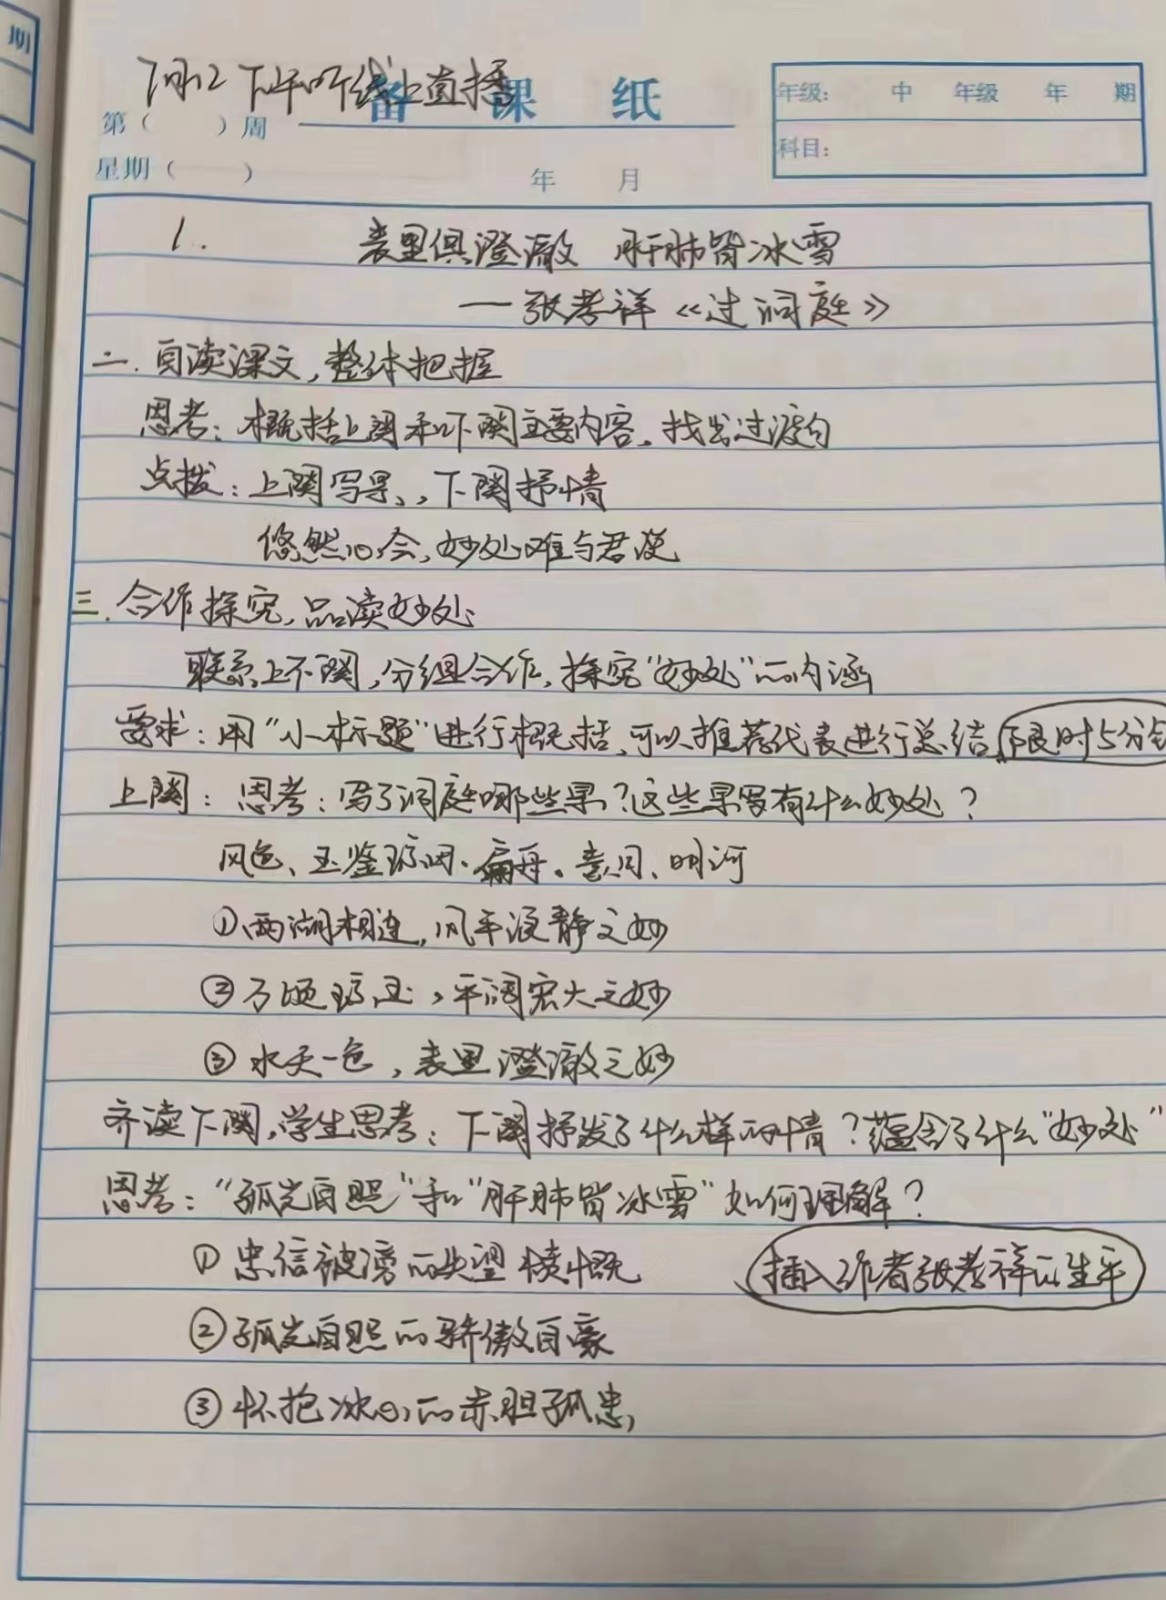 期
7月12下午听线上直播
备 课 纸
年级: 中 年级 年 期
第( )周
科目:
星期( )
年 月
1.
表里俱澄澈 肝肺皆冰雪
—张孝祥《过洞庭》
二.自读课文,整体把握
思考:概括上阕和下阕主要内容,找出过渡句
点拨:上阕写景,,下阕抒情
悠然心会,妙处难与君说
三.合作探究,品读妙处
联系上下阕,分组合作,探究“妙处”的内涵
要求:用“小标题”进行概括,可以推荐代表进行总结,限时5分钟
上阕:思考:写了洞庭哪些景?这些景写有什么妙处?
风色、玉鉴琼田、扁舟、素月、明河
①两湖相连,风平浪静之妙
②万顷琼玉,平阔宏大之妙
③水天一色,表里澄澈之妙
齐读下阕,学生思考:下阕抒发了什么样的情?蕴含了什么“妙处”
思考:“孤光自照”和“肝肺皆冰雪”如何理解?
①忠信被谤的失望愤慨
插入作者张孝祥的生平
②孤光自照的骄傲自豪
③怀抱冰心的赤胆孤忠